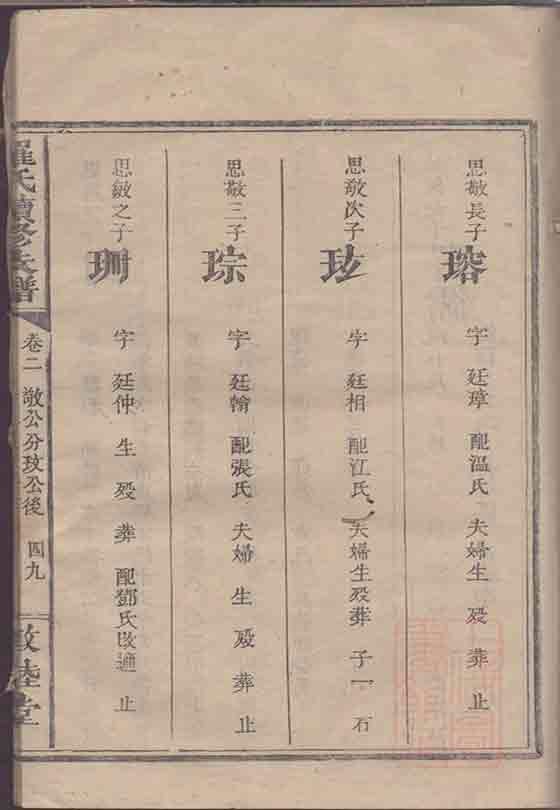 思敬長子
瑢
字 廷璋 配溫氏 夫婦生 殁 葬 止
思敬次子
玹
字 廷相 配江氏 夫婦生殁葬 子一 石
思敬三子
琮
字 廷翰 配張氏 夫婦 生 殁 葬 止
思敏之子
珊
字 廷仲 生 殁 葬 配鄧氏改適 止
羅氏續修族譜
卷二 敬公分玟公後 四九
敦睦堂